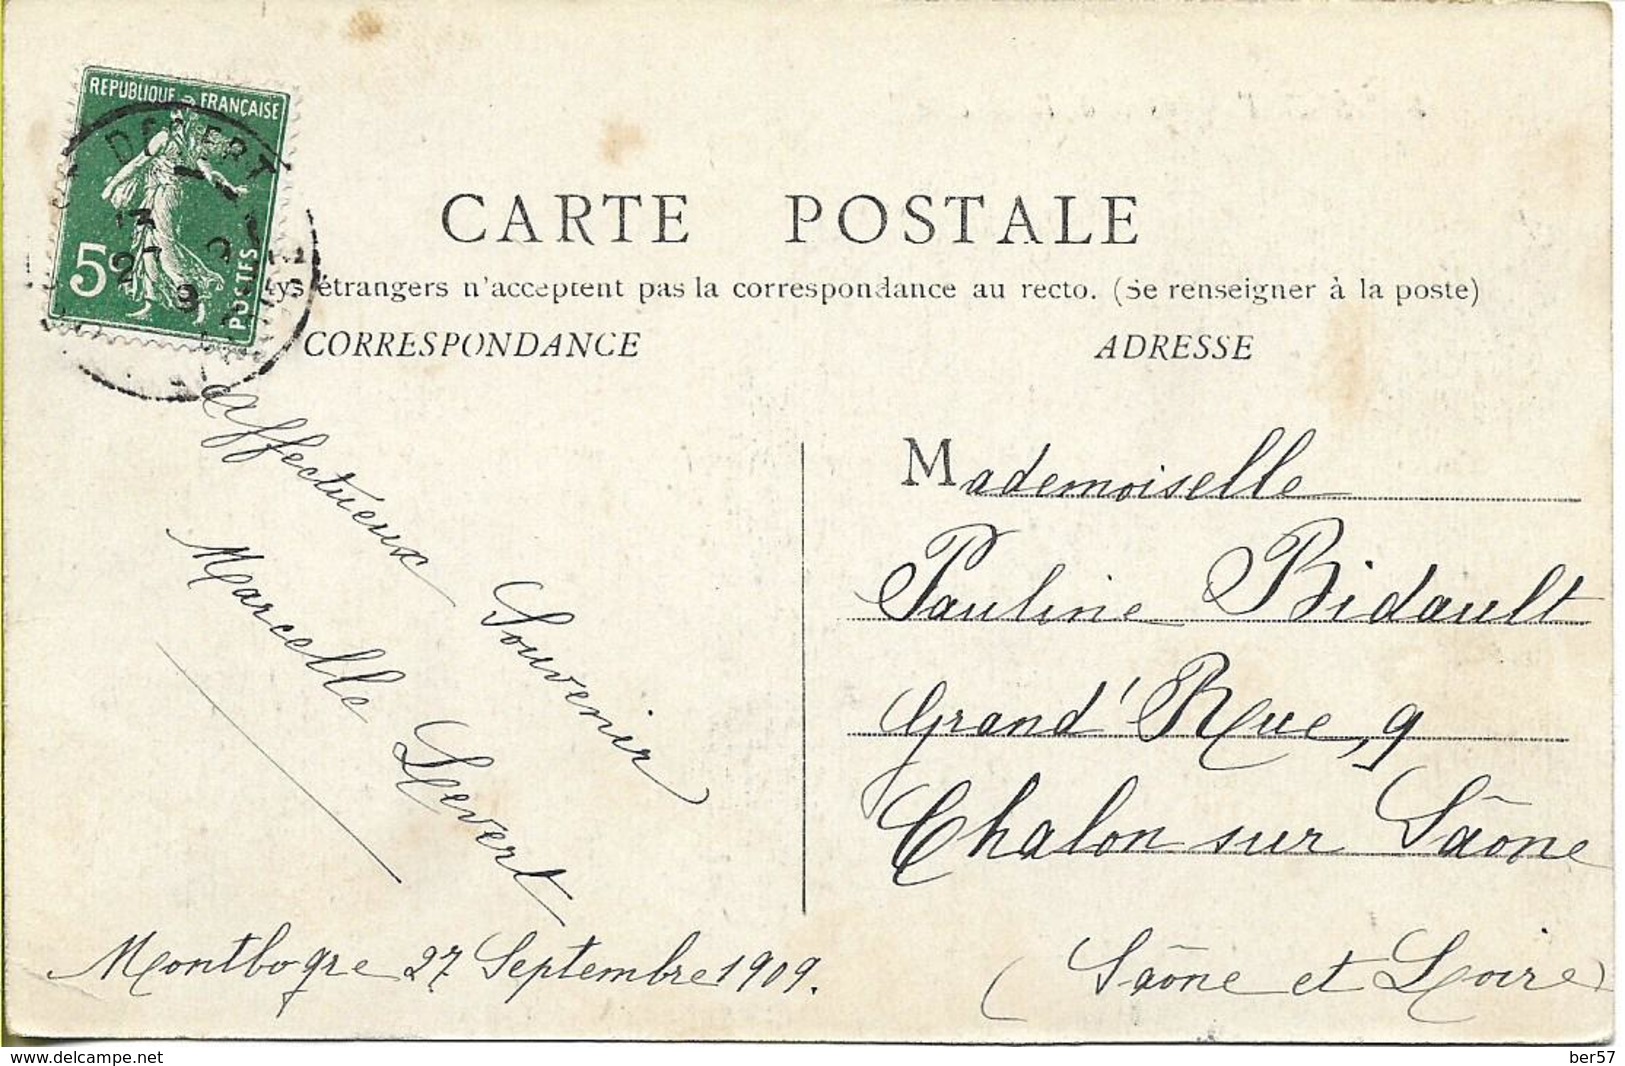 REPUBLIQUE FRANÇAISE
5c
POSTES
CARTE POSTALE
étrangers n'acceptent pas la correspondance au recto. (Se renseigner à la poste)
CORRESPONDANCE
ADRESSE
Affectueux Souvenir
Marcelle Levert
Montbogre 27 Septembre 1909.
Mademoiselle
Pauline Bidault
Grand' Rue, 9
Chalon sur Saône
(Saône et Loire)
www.delcampe.net
ber57